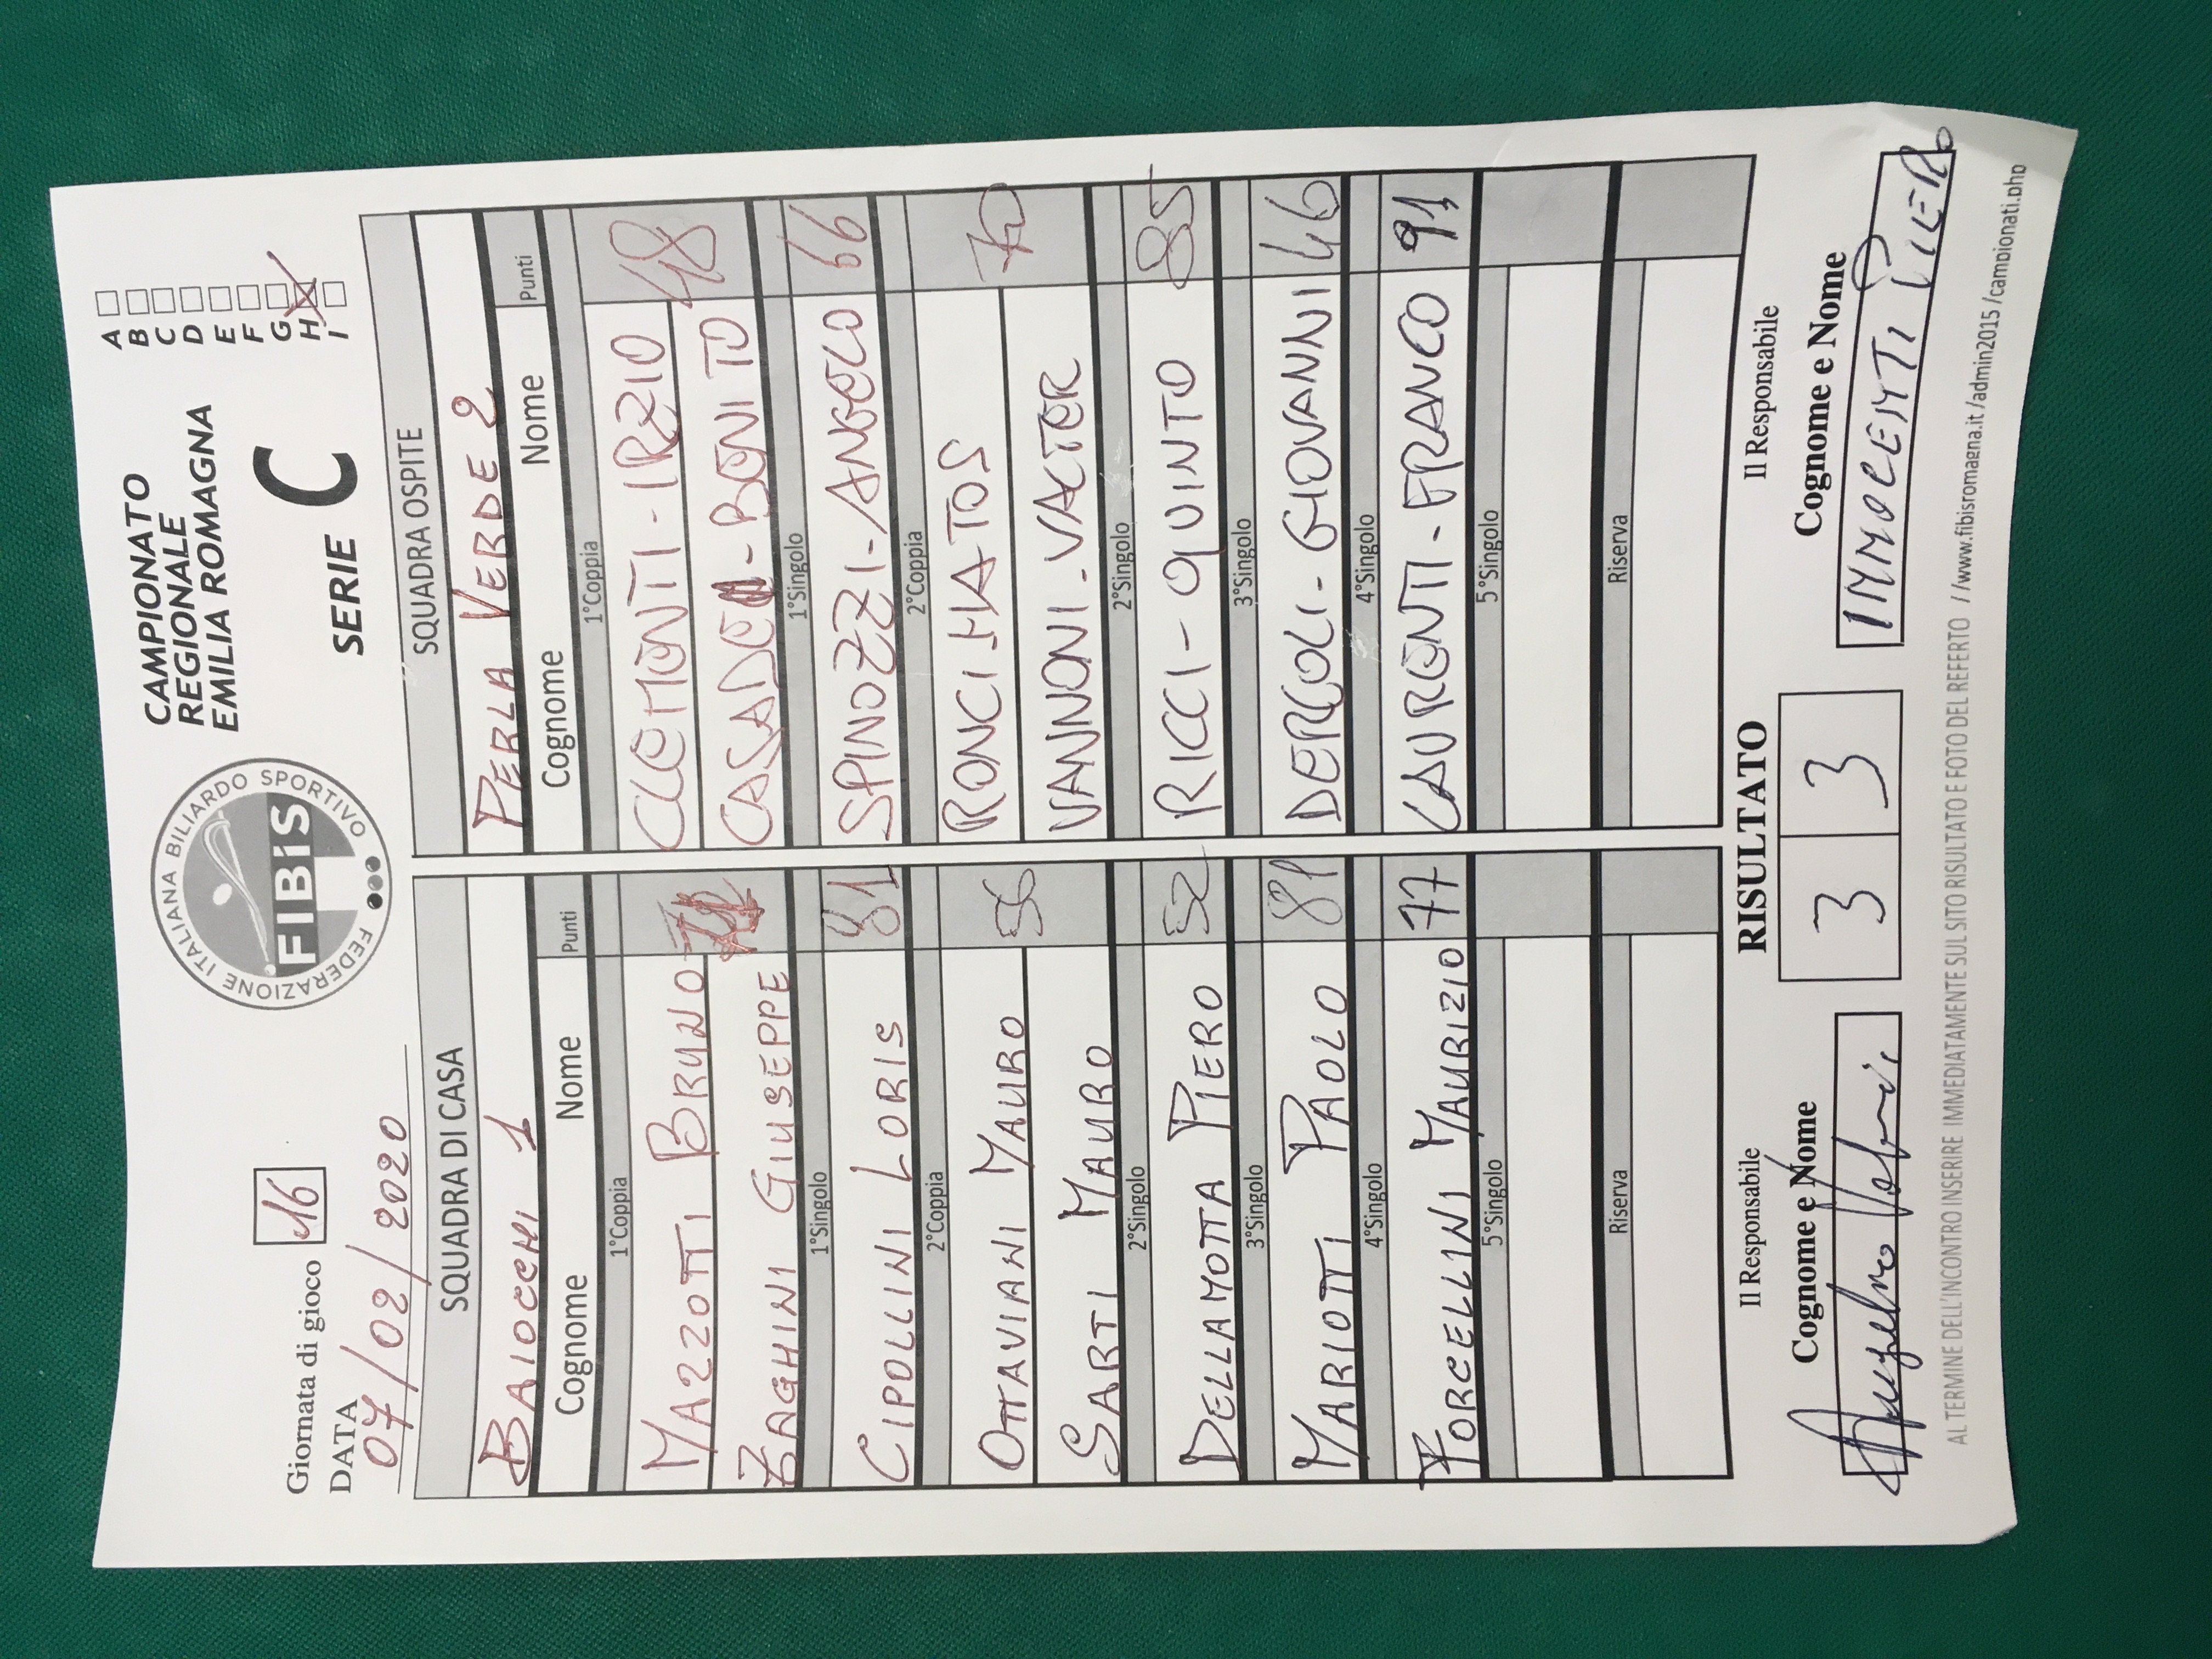 Giornata di gioco 16
DATA
07/02/2020
FEDERAZIONE ITALIANA BILIARDO SPORTIVO
FIBIS
CAMPIONATO
REGIONALE
EMILIA ROMAGNA
SERIE C
A
B
C
D
E
F
G
H
I
SQUADRA DI CASA
BAIOCCHI 1
Cognome Nome Punti
1°Coppia
MAZZOTTI BRUNO
ZAGHINI GIUSEPPE
1°Singolo
CIPOLLINI LORIS 81
2°Coppia
OTTAVIANI MAURO 56
SARTI MAURO
2°Singolo
DELLAMOTTA PIERO 52
3°Singolo
MARIOTTI PAOLO 81
4°Singolo
FORCELLINI MAURIZIO 77
5°Singolo
Riserva
SQUADRA OSPITE
PERLA VERDE 2
Cognome Nome Punti
1°Coppia
CLEMENTI - IRZIO 48
CASADEI - BENITO
1°Singolo
SPINOZZI - ANGELO 66
2°Coppia
RONCI MATOS 70
VANNONI - VALTER
2°Singolo
RICCI - QUINTO 85
3°Singolo
DERCOLI - GIOVANNI 46
4°Singolo
LAURENTI - FRANCO 91
5°Singolo
Riserva
Il Responsabile
Cognome e Nome
RISULTATO
3 3
Il Responsabile
Cognome e Nome
INNOCENTI PIERO
AL TERMINE DELL'INCONTRO INSERIRE IMMEDIATAMENTE SUL SITO RISULTATO E FOTO DEL REFERTO //www.fibisromagna.it /admin2015 /campionati.php